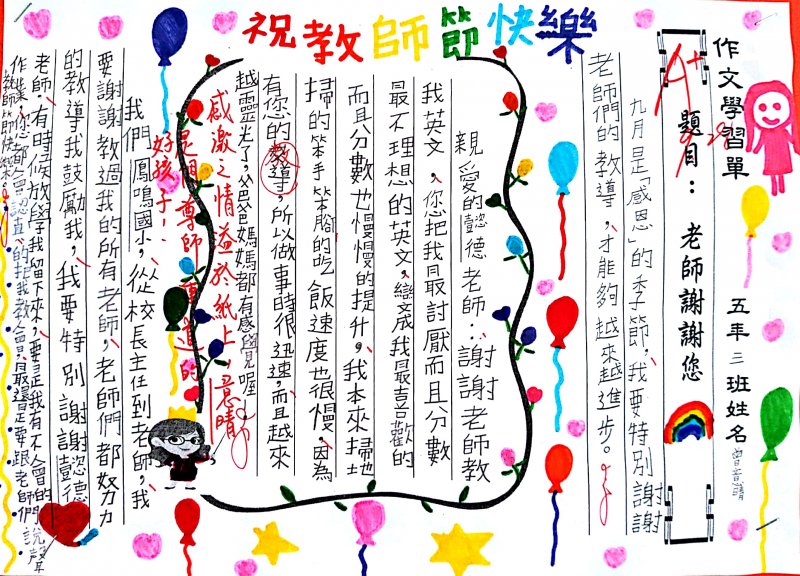 祝教師節快樂
作文學習單
五年三班姓名
A+
題目：老師謝謝您
九月是「感恩」的季節，我要特別謝謝
老師們的教導，才能夠越來越進步。
親愛的懿德老師：謝謝老師教
我英文，您把我最討厭而且分數
最不理想的英文，變成我最喜歡的
而且分數也慢慢的提升。我本來掃地
掃的笨手笨腳的吃飯速度也很慢，因為
有您的教導，所以做事時很迅速，而且越來
越靈光了，爸爸媽媽都有感覺喔，
感激之情溢於紙上，意晴
是個尊師重道的
好孩子！
我們鳳鳴國小，從校長主任到老師，我
要謝謝教過我的所有老師，老師們都努力
的教導我鼓勵我，我要特別謝謝懿德
老師，有時候放學我留下來，要是我有不會的
作業，您都會認真的把我教會，最後還是要跟老師們說聲
教師節快樂。